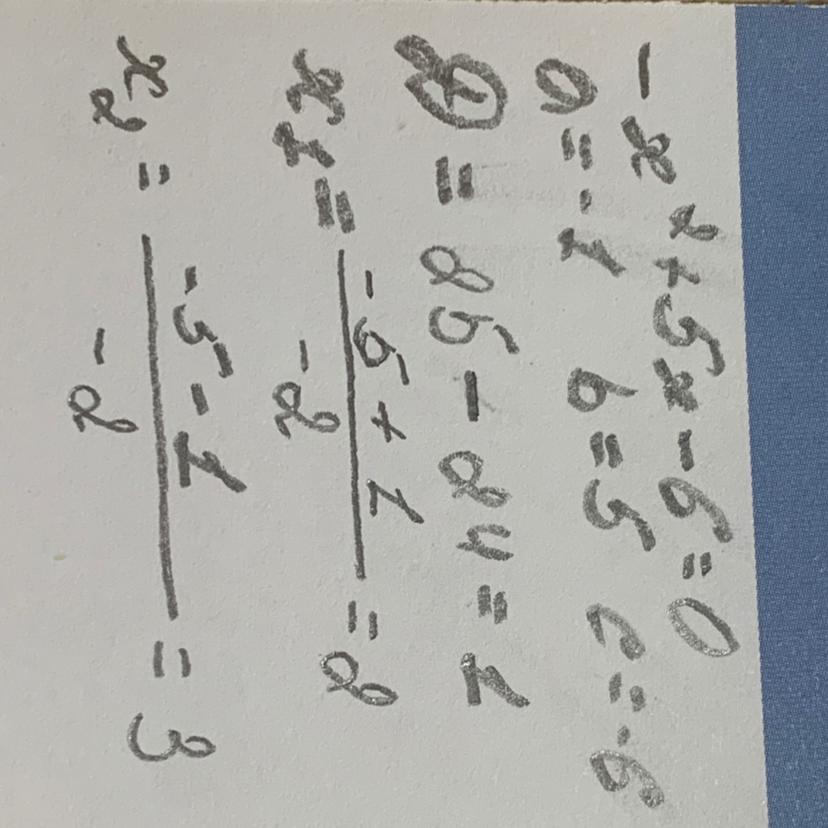 -x² + 5x - 6 = 0
a = -1 b = 5 c = -6
= 25 - 24 = 1
x₁ = (-5 + 1) / -2 = 2
x₂ = (-5 - 1) / -2 = 3